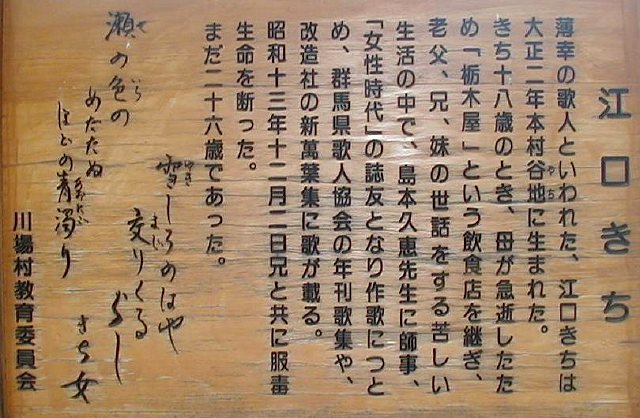 江口きち
薄幸の歌人といわれた、江口きちは
大正二年本村谷地に生まれた。
やち
きち十八歳のとき、母が急逝したた
め「栃木屋」という飲食店を継ぎ、
老父、兄、妹の世話をする苦しい
生活の中で、島本久恵先生に師事、
「女性時代」の誌友となり作歌につと
め、群馬県歌人協会の年刊歌集や、
改造社の新萬葉集に歌が載る。
昭和十三年十二月二日兄と共に服毒
生命を断った。
まだ二十六歳であった。
雪しろのはや
ゆき
交りくるらし
まじ
瀬の色の
せ
いろ
めたたぬ
ほどの青濁り
あおにごり
きち女
川場村教育委員会